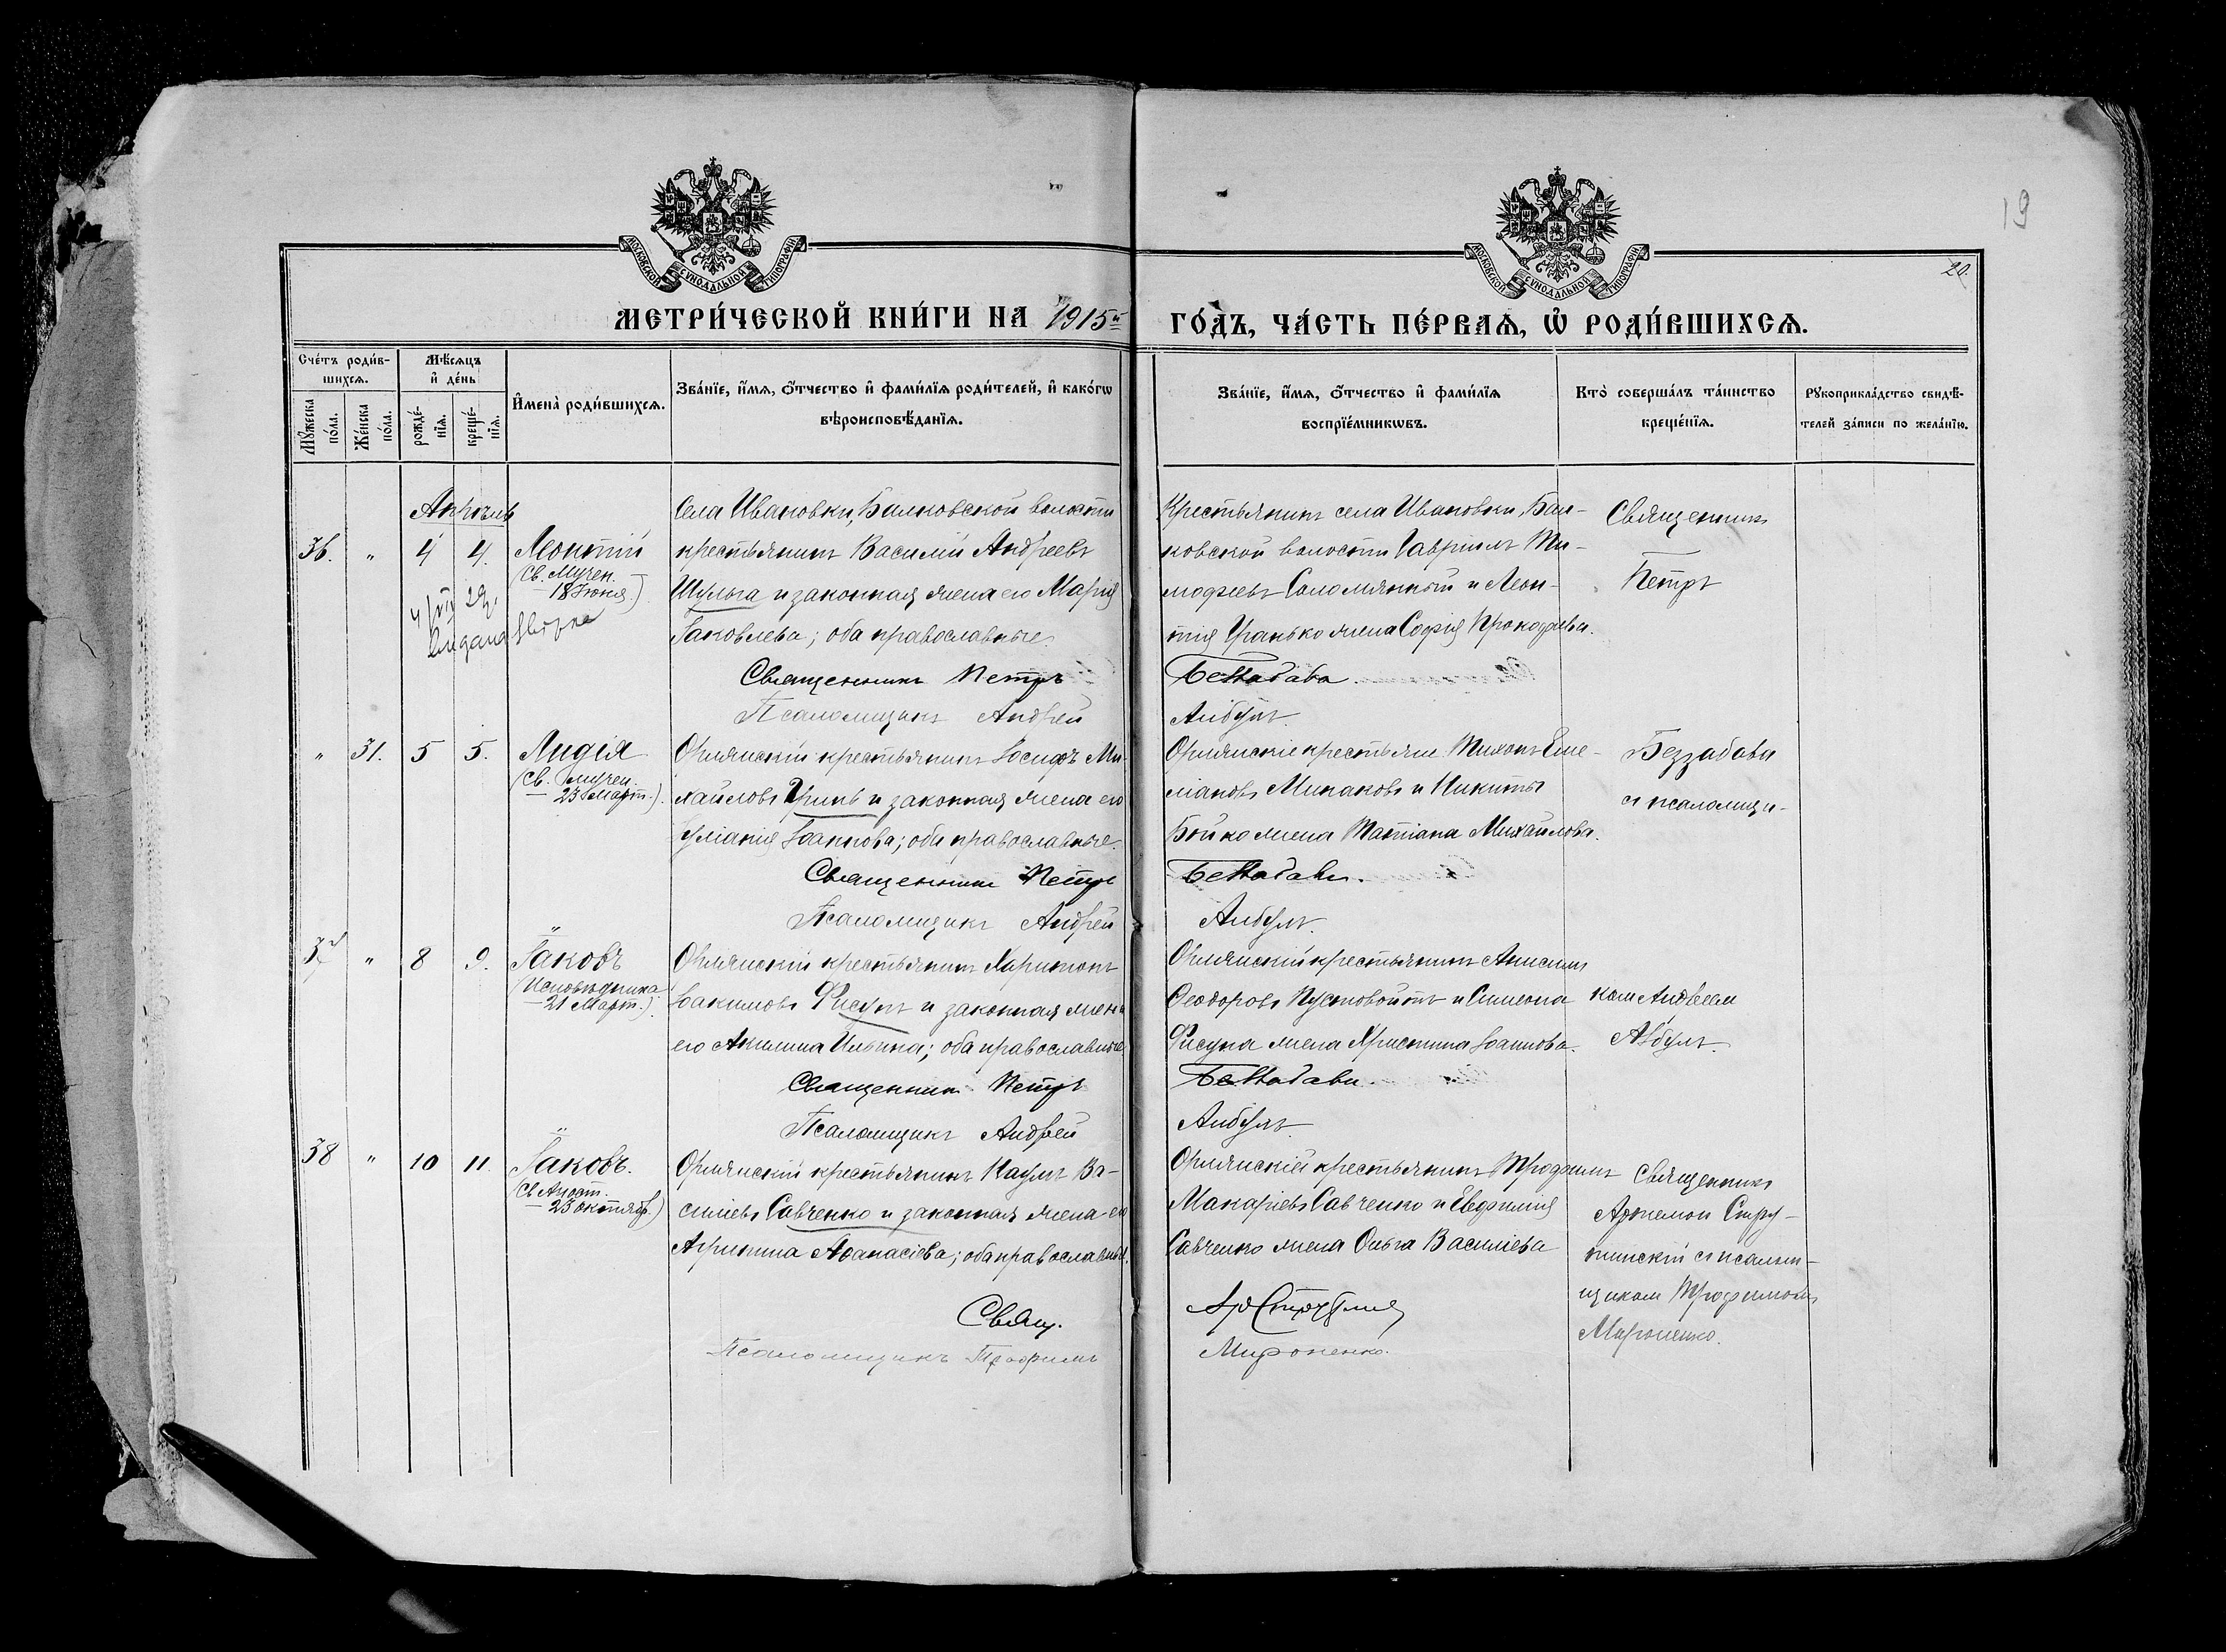 19
20.
МОСКОВСКОЙ СѴНОДАЛЬНОЙ ТИПОГРАФІИ
МОСКОВСКОЙ СѴНОДАЛЬНОЙ ТИПОГРАФІИ
МЕТРИ́ЧЕСКОЙ КНИ́ГИ НА 1915й ГО́ДЪ, ЧА́СТЬ ПЕ́РВАѦ, Ѡ҆ РОДИ́ВШИХСѦ.
Сче́тъ роди́в-
шихсѧ.
Мꙋ́жеска по́ла.
Же́нска по́ла.
Мѣ́сѧцъ
и҆ де́нь
рожде́-
нїѧ.
креще́-
нїѧ.
И҆мена̀ роди́вшихсѧ.
Зва́нїе, и҆́мѧ, ѻ҆́тчество и҆ фами́лїѧ роди́телей, и҆ како́гѡ
вѣроисповѣ́данїѧ.
Зва́нїе, и҆́мѧ, ѻ҆́тчество и҆ фами́лїѧ
воспрїе́мникѡвъ.
Кто̀ соверша́лъ та́инство
креще́нїѧ.
Рꙋкоприкла́дство свидѣ́-
телей за́писи по жела́нїю.
Апрѣль
36. " 4 4. Леонтій
(Св. Мучен.
— 18 Іюня.)
Села Ивановки, Балковской волости
крестьянинъ Василій Андреевъ
Шульга и законная жена его Марія
Іаковлева; оба православные.
Священникъ Петръ
Псаломщикъ Андрей
Крестьянинъ села Ивановки, Бал-
ковской волости Гавріилъ Ти-
мофеевъ Соломянный и Леон-
тія жена Софія Прокофіева.
Беззабава.
Священникъ
Петръ
" 31. 5 5. Лидія
(Св. мучен.
— 23 Март.)
Орлянскій крестьянинъ Іосифъ Ми-
хайловъ Гринь и законная жена его
Іуліанія Іоаннова; оба православные.
Священникъ Петръ
Псаломщикъ Андрей
Орлянскіе крестьяне Тихонъ Еме-
ліановъ Минаковъ и Никиты
Бойко жена Татіана Михайлова.
Беззабава.
Беззабава
съ псаломщи-
37 " 8 9. Іаковъ
(Исповѣдника
— 21 Март.)
Орлянскій крестьянинъ Харитонъ
Іоакимовъ Фисунъ и законная жена
его Акилина Ильина; оба православные.
Священникъ Петръ
Псаломщикъ Андрей
Орлянскій крестьянинъ Анисимъ
Феодоровъ Пустовойтъ и Симеона
Фисуна жена Христина Іоаннова.
Беззабава.
комъ Андреем
38 " 10 11. Іаковъ.
(Св. Апост.
— 23 октябр.)
Орлянскій крестьянинъ Наумъ Ва-
силіевъ Савченко и законная жена его
Агрипина Афанасіева; оба православные.
Свящ.
Псаломщикъ Трофимъ
Орлянскій крестьянинъ Трофимъ
Макаріевъ Савченко и Евфимія
Савченко жена Ольга Василіева
Мироненко.
Священникъ
съ псалом-
щиком Трофимомъ
Мироненко.